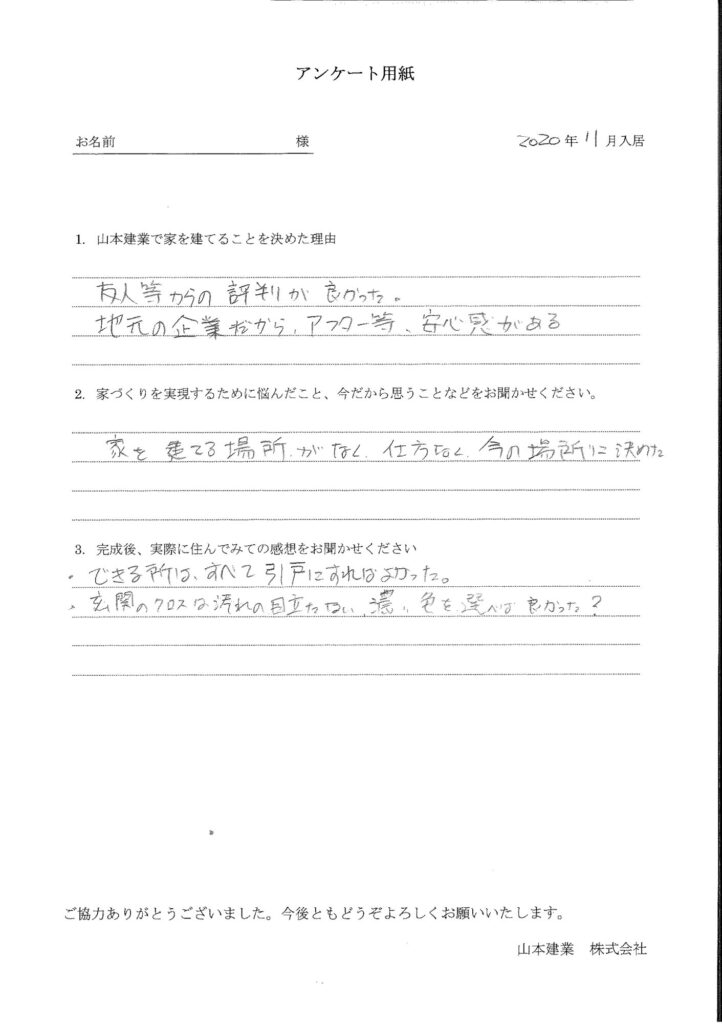 アンケート用紙
お名前 様 2020年11月入居
1. 山本建業で家を建てることを決めた理由
友人等からの評判が良かった。
地元の企業だから、アフター等、安心感がある
2. 家づくりを実現するために悩んだこと、今だから思うことなどをお聞かせください。
家を建てる場所がなく、仕方なく、今の場所に決めた
3. 完成後、実際に住んでみての感想をお聞かせください
・できる所は、すべて引戸にすればよかった。
・玄関のクロスは汚れの目立たない、濃い色を選べば良かった?
ご協力ありがとうございました。今後ともどうぞよろしくお願いいたします。
山本建業 株式会社